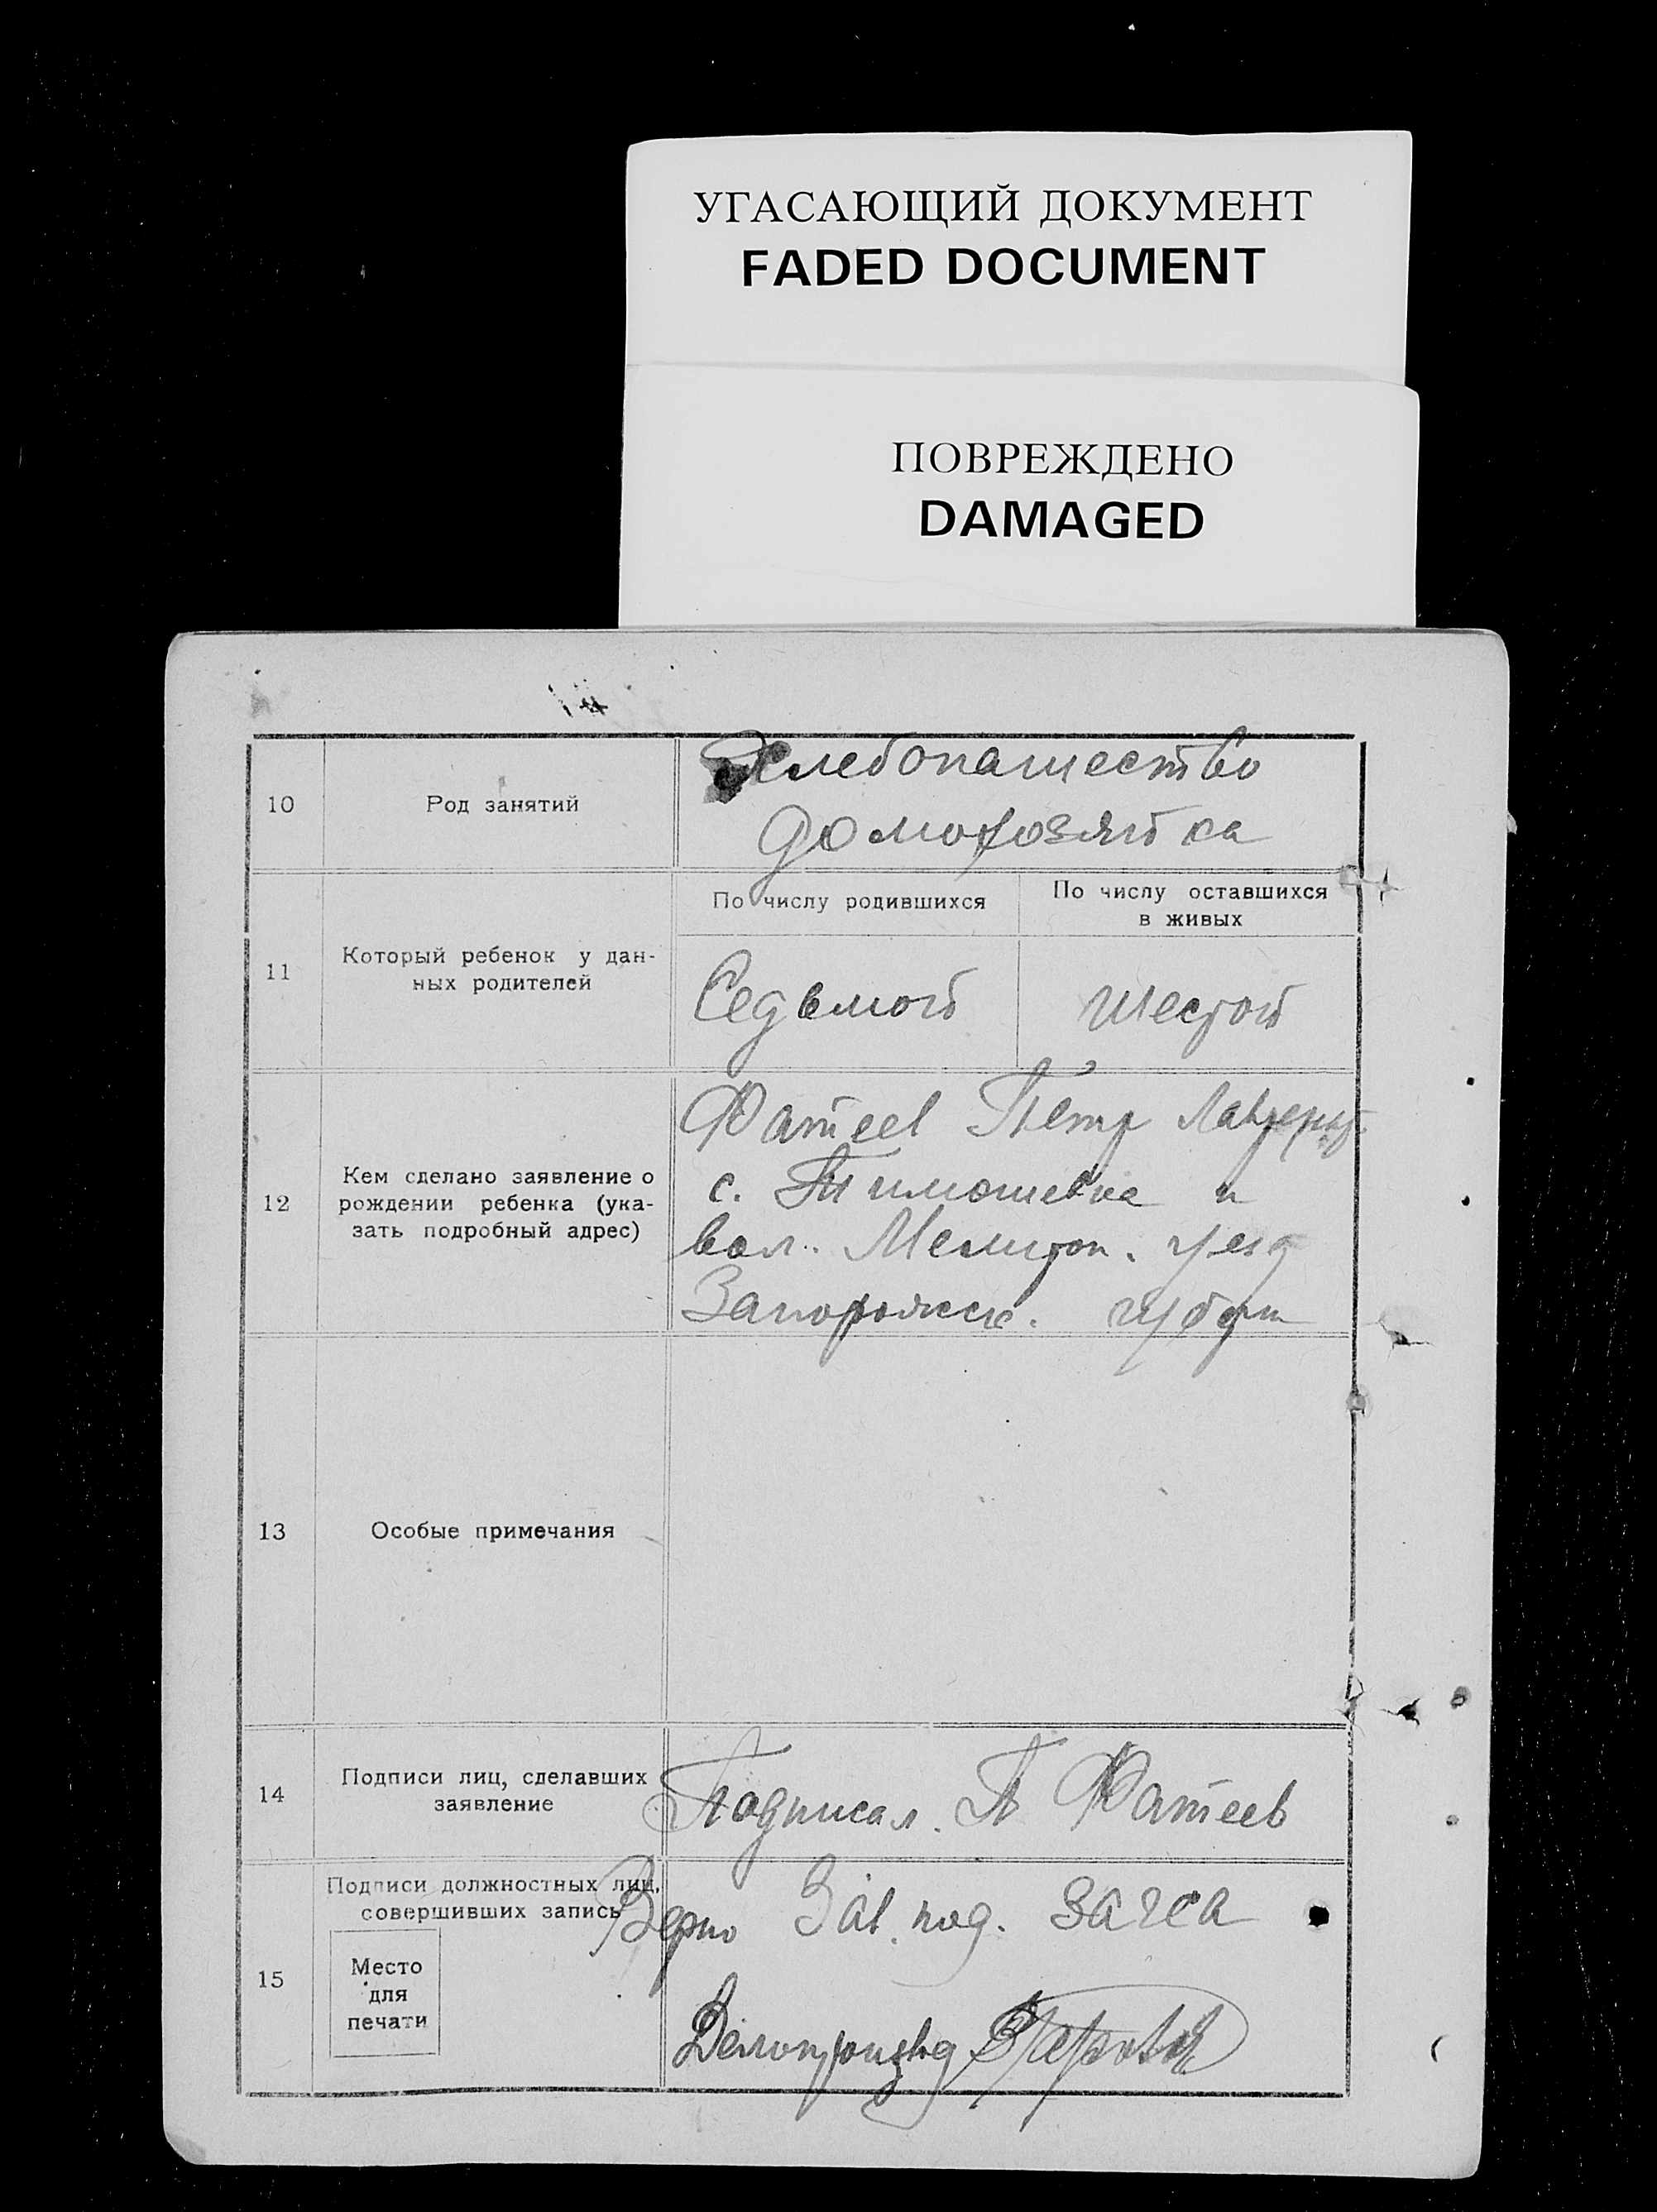 УГАСАЮЩИЙ ДОКУМЕНТ
FADED DOCUMENT
ПОВРЕЖДЕНО
DAMAGED
10 Род занятий
Хлебопашество
домохозяйка
11 Который ребенок у дан-
ных родителей
По числу родившихся
По числу оставшихся
в живых
Седьмой
Шестой
12 Кем сделано заявление о
рождении ребенка (ука-
зать подробный адрес)
Фатеев Петр
с. Тимошевка и
вол. Мелитоп. уезд
Запорожск.
13 Особые примечания
14 Подписи лиц, сделавших
заявление
Подписал. П Фатеев
15 Подписи должностных лиц,
совершивших запись
Место
для
печати
Верно Зав. под. загса
Делопроизвд